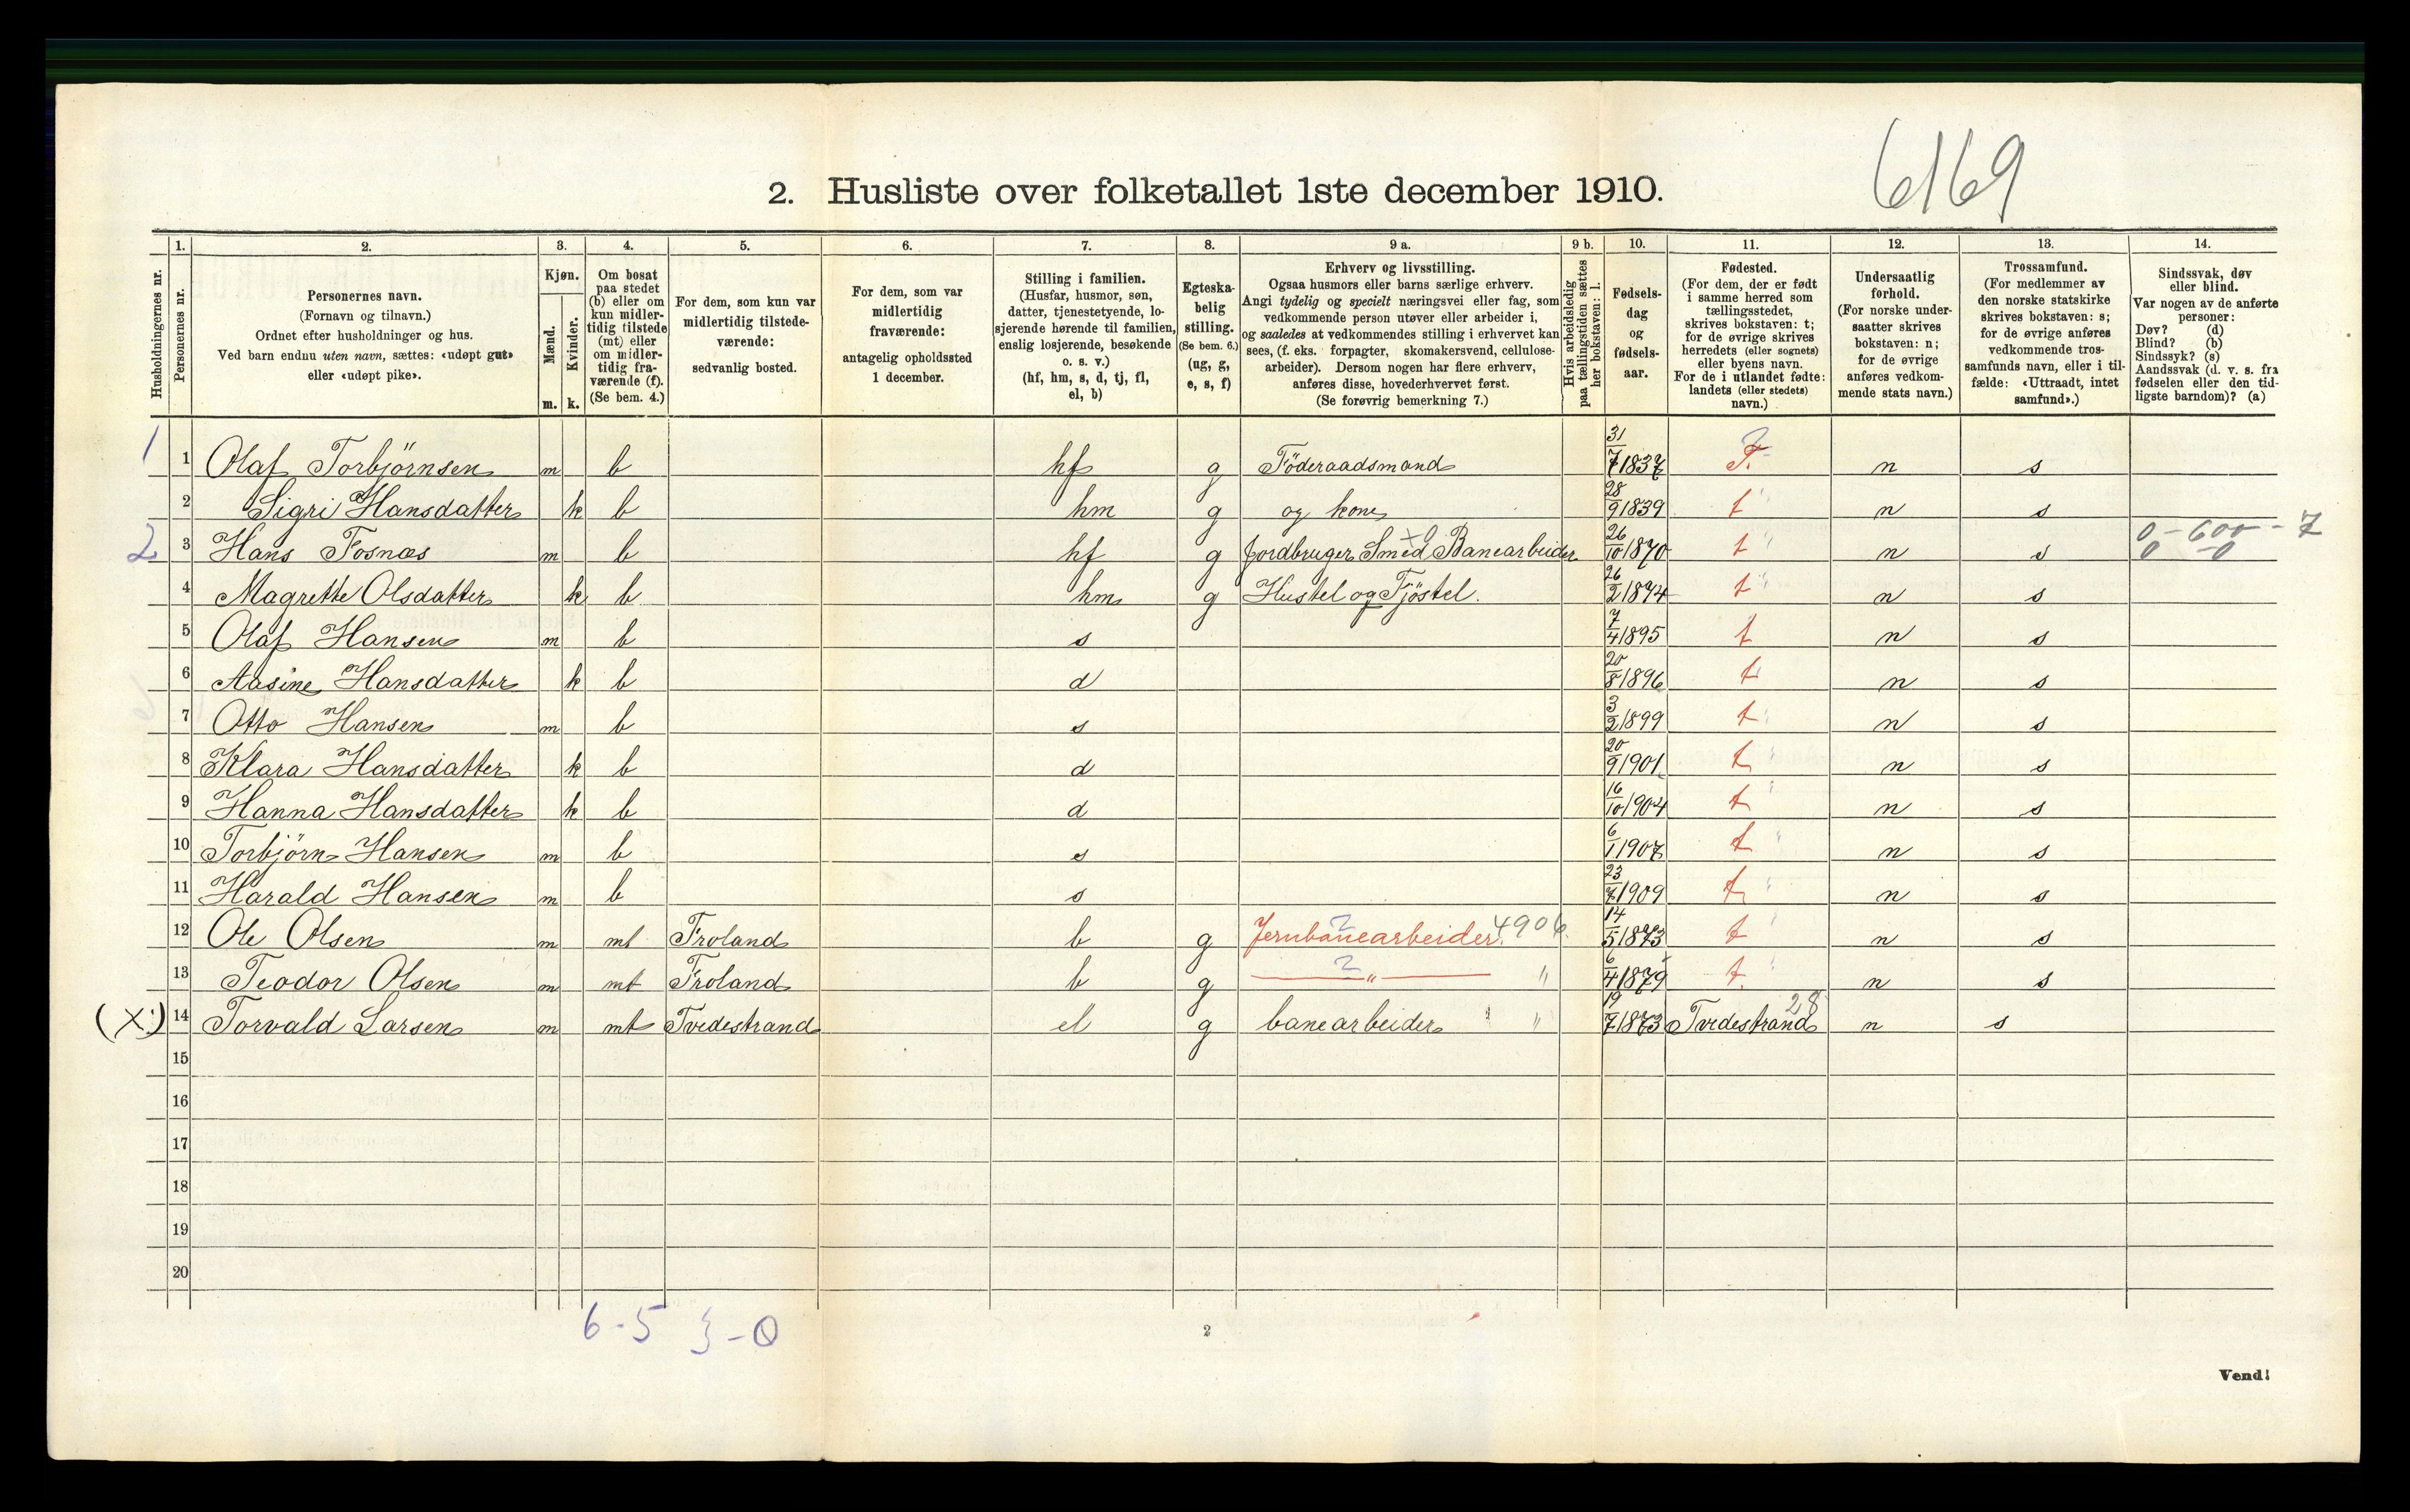 6169
2. Husliste over folketallet 1ste december 1910.
1. 2. 3. 4. 5. 6. 7. 8. 9 a. 9 b. 10. 11. 12. 13. 14.
Husholdningernes nr.
Personernes nr.
Personernes navn.
(Fornavn og tilnavn.)
Ordnet efter husholdninger og hus.
Ved barn endnu uten navn, sættes: «udøpt gut»
eller «udøpt pike».
Kjøn.
Mænd.
Kvinder.
m. k.
Om bosat
paa stedet
(b) eller om
kun midler-
tidig tilstede
(mt) eller
om midler-
tidig fra-
værende (f).
(Se bem. 4.)
For dem, som kun var
midlertidig tilstede-
værende:
sedvanlig bosted.
For dem, som var
midlertidig
fraværende:
antagelig opholdssted
1 december.
Stilling i familien.
(Husfar, husmor, søn,
datter, tjenestetyende, lo-
sjerende hørende til familien,
enslig losjerende, besøkende
o. s. v.)
(hf, hm, s, d, tj, fl,
el, b)
Egteska-
belig
stilling.
(Se bem. 6.)
(ug, g,
e, s, f)
Erhverv og livsstilling.
Ogsaa husmors eller barns særlige erhverv.
Angi tydelig og specielt næringsvei eller fag, som
vedkommende person utøver eller arbeider i,
og saaledes at vedkommendes stilling i erhvervet kan
sees, (f. eks. forpagter, skomakersvend, cellulose-
arbeider). Dersom nogen har flere erhverv,
anføres disse, hovederhvervet først.
(Se forøvrig bemerkning 7.)
Hvis arbeidsledig
paa tællingstiden sættes
her bokstaven: l.
Fødsels-
dag
og
fødsels-
aar.
Fødested.
(For dem, der er født
i samme herred som
tællingsstedet,
skrives bokstaven: t;
for de øvrige skrives
herredets (eller sognets)
eller byens navn.
For de i utlandet fødte:
landets (eller stedets)
navn.)
Undersaatlig
forhold.
(For norske under-
saatter skrives
bokstaven: n;
for de øvrige
anføres vedkom-
mende stats navn.)
Trossamfund.
(For medlemmer av
den norske statskirke
skrives bokstaven: s;
for de øvrige anføres
vedkommende tros-
samfunds navn, eller i til-
fælde: «Uttraadt, intet
samfund».)
Sindssvak, døv
eller blind.
Var nogen av de anførte
personer:
Døv? (d)
Blind? (b)
Sindssyk? (s)
Aandssvak (d. v. s. fra
fødselen eller den tid-
ligste barndom)? (a)
1 1 Olaf Torbjörnsen m b hf g Föderaadsmand 31/7 1837 T. n s
2 Sigri Hansdatter k b hm g og kone 28/9 1839 t n s
2 3 Hans Fosnæs m b hf g Jordbruger Smed Banearbeider 26/10 1870 t n s 0-600-7
0 -0
4 Magrette Olsdatter k b hm g Hustel og Fjöstel. 26/2 1874 t n s
5 Olaf Hansen m b s 7/4 1895 t n s
6 Aasine Hansdatter k b d 20/8 1896 t n s
7 Otto Hansen m b s 3/2 1899 t n s
8 Klara Hansdatter k b d 20/9 1901 t n s
9 Hanna Hansdatter k b d 16/10 1904 t n s
10 Torbjörn Hansen m b s 6/1 1907 t n s
11 Harald Hansen m b s 23/7 1909 t n s
12 Ole Olsen m mt Froland b g Jernbanearbeider 4906. 14/5 1873 t n s
13 Teodor Olsen m mt Froland b g — " — " 6/4 1879 t. n s
(X:) 14 Torvald Larsen m mt Tvedestrand el g banearbeider " 19/7 1873 Tvedestrand 28 n s
15
16
17
18
19
20
6-5 3-0
2
Vend!